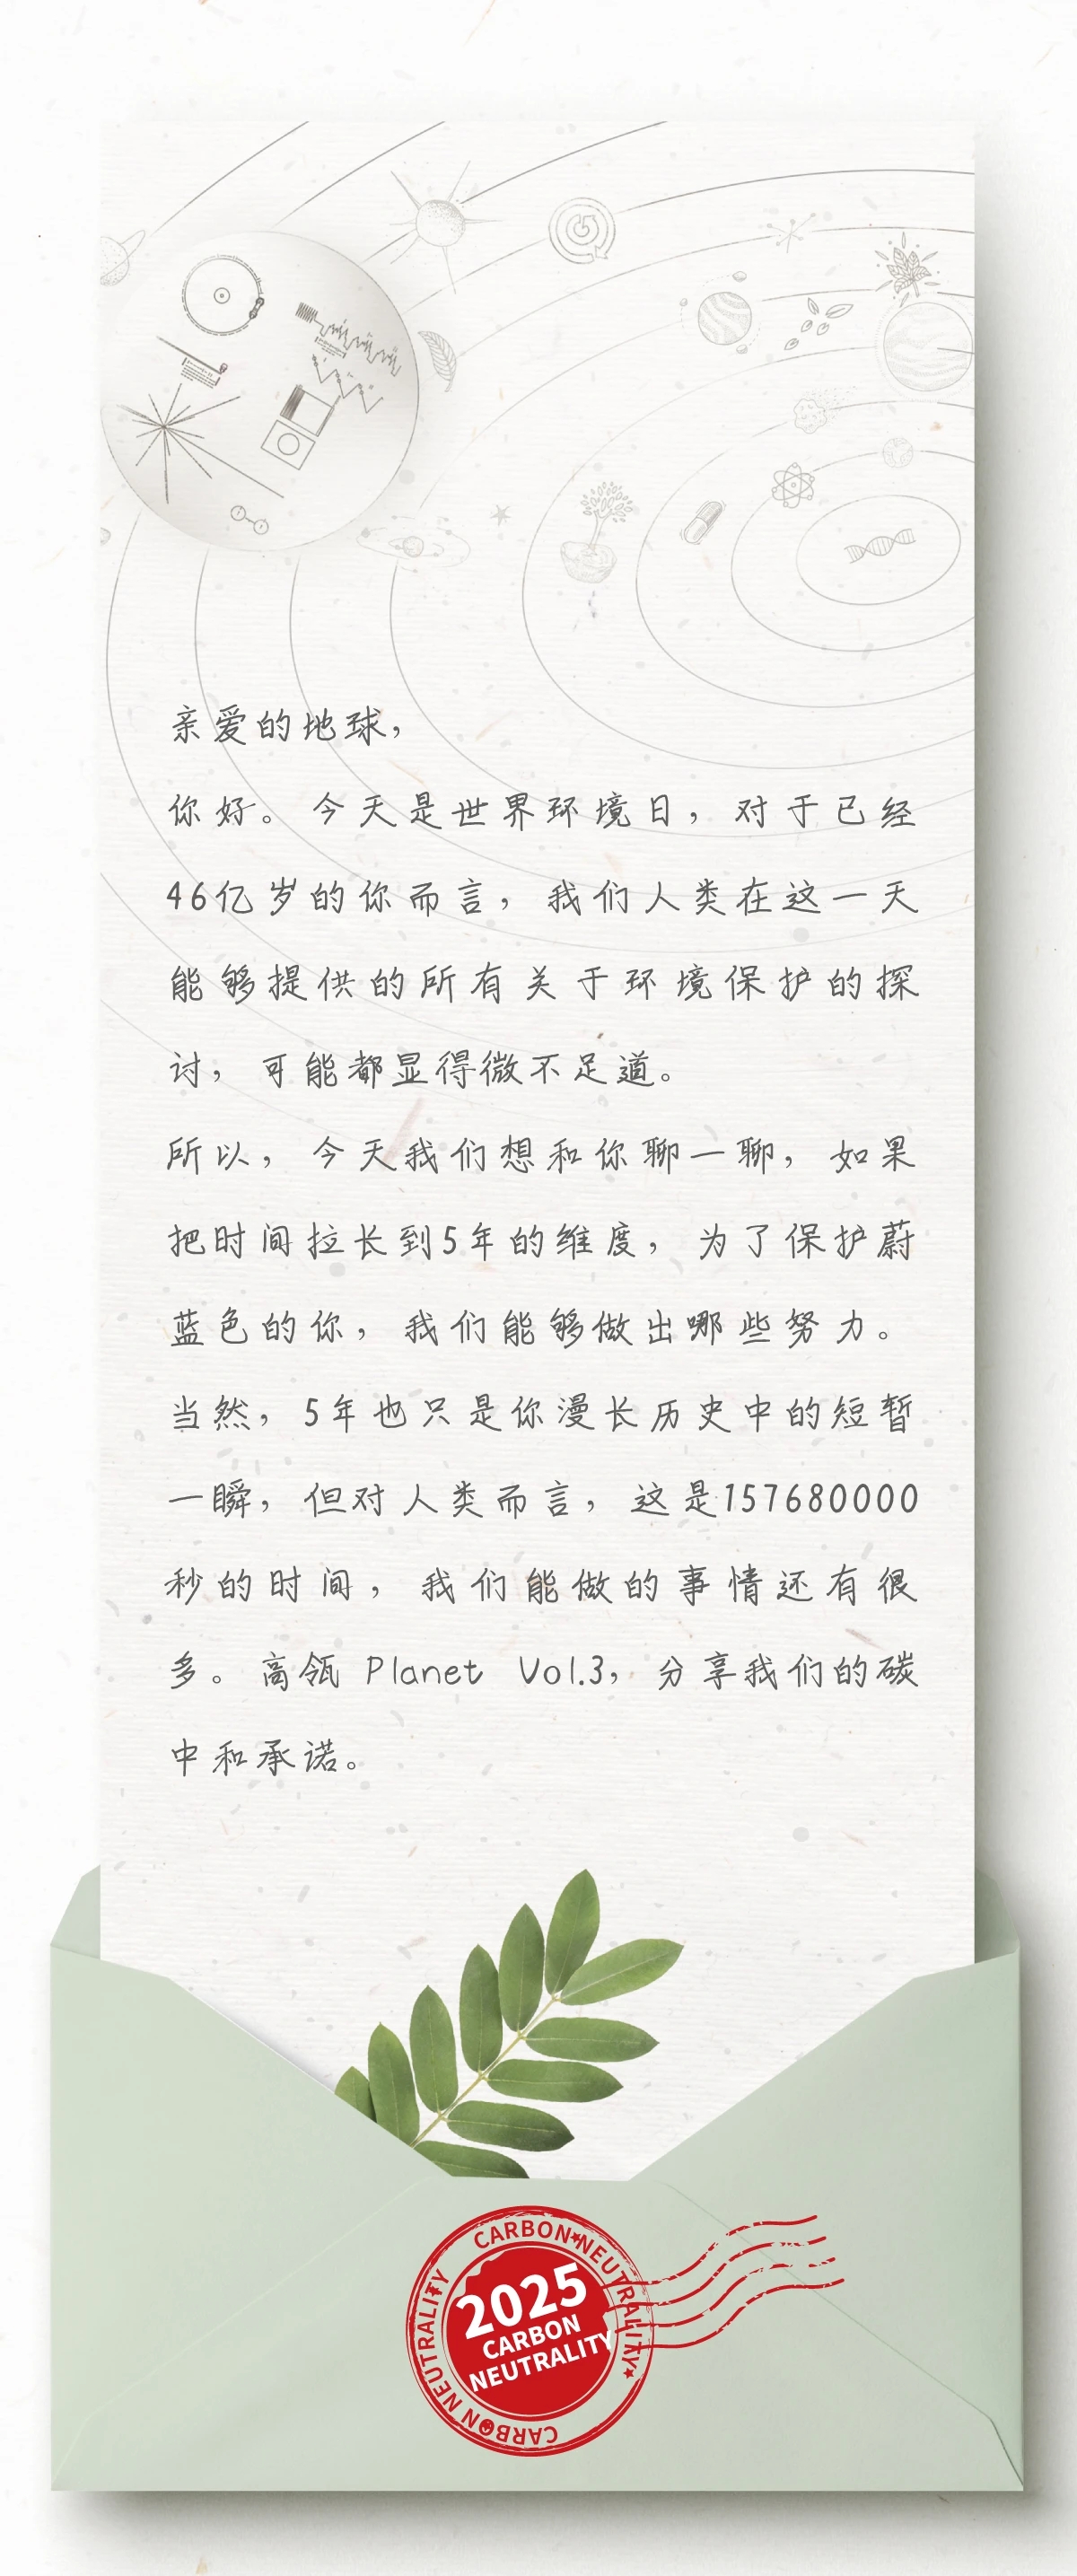 亲爱的地球，
你好。今天是世界环境日，对于已经
46亿岁的你而言，我们人类在这一天
能够提供的所有关于环境保护的探
讨，可能都显得微不足道。
所以，今天我们想和你聊一聊，如果
把时间拉长到5年的维度，为了保护蔚
蓝色的你，我们能够做出哪些努力。
当然，5年也只是你漫长历史中的短暂
一瞬，但对人类而言，这是157680000
秒的时间，我们能做的事情还有很
多。高瓴 Planet Vol.3，分享我们的碳
中和承诺。
CARBON NEUTRALITY
CARBON NEUTRALITY
2025
CARBON
NEUTRALITY